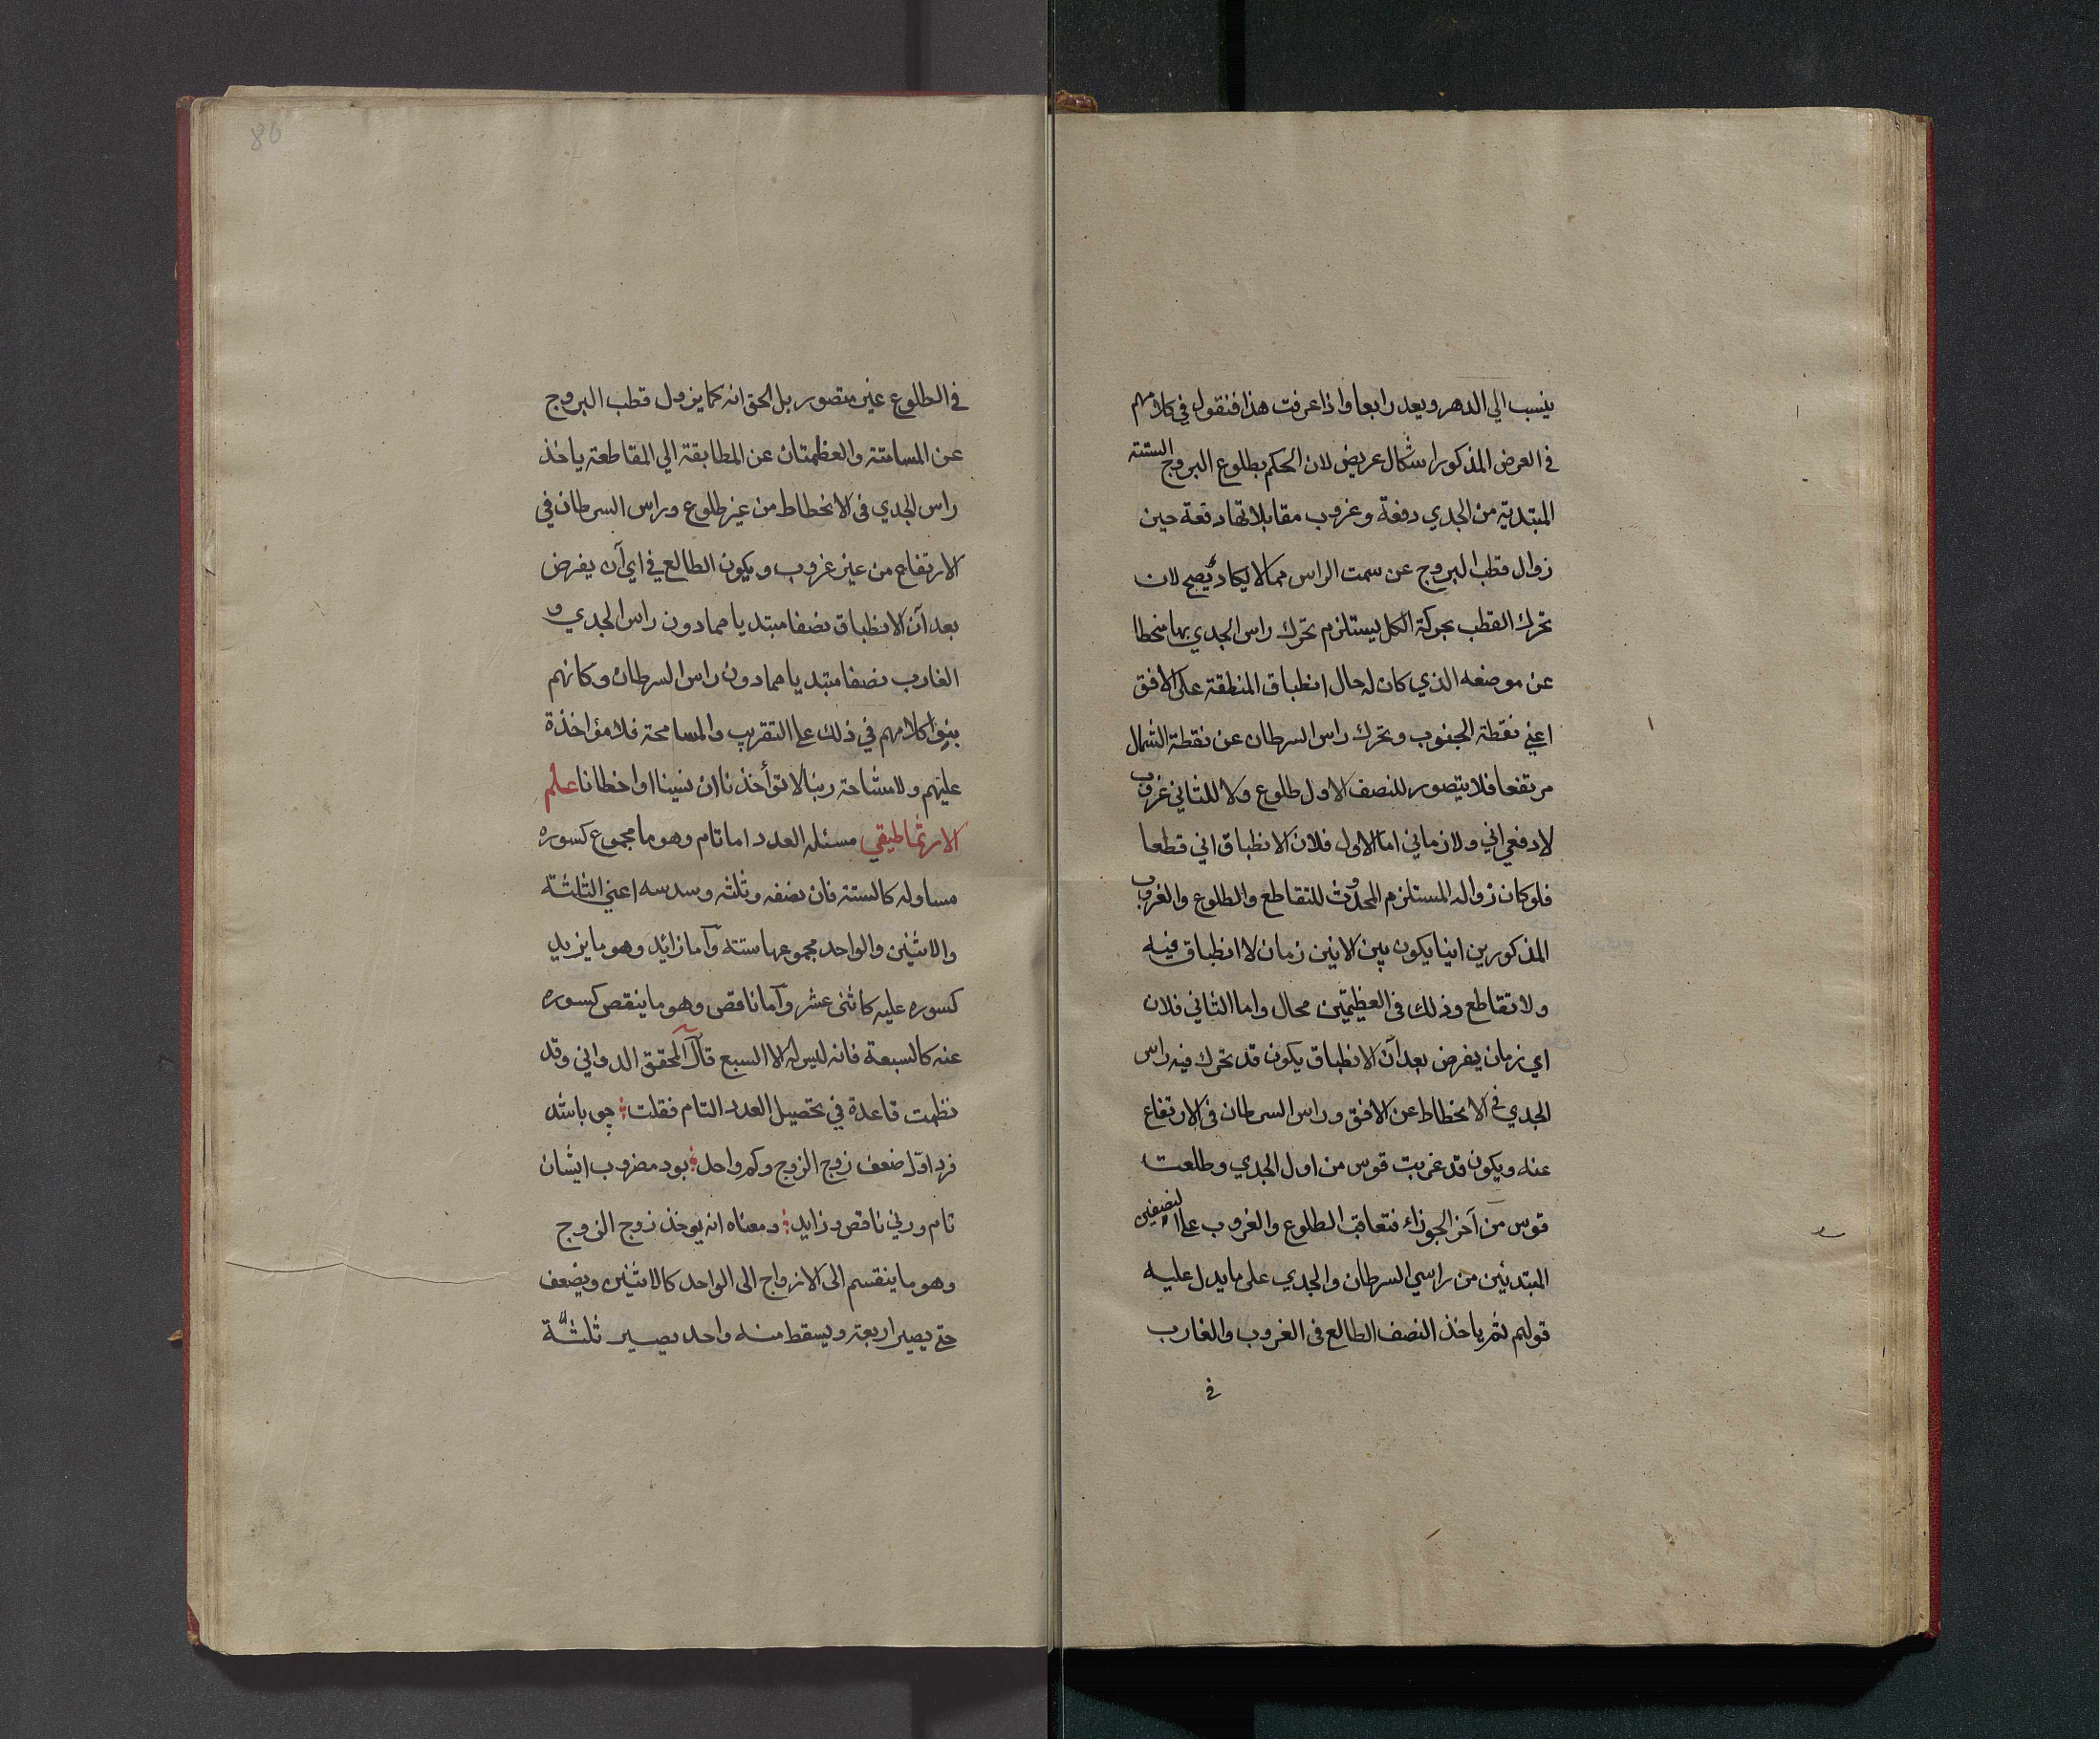 ينسب الي الدهر ويعد رابعا واذا عرفت هذا فنقول في كلامهم
في العرض المذكور اشكال عريض لان الحكم بطلوع البروج الستة
المبتدية من الجدي دفعة وغروب مقابلاتها دفعة حين
زوال قطب البروج عن سمت الراس مما لا يكاد يصح لان
تحرك القطب بحركة الكل يستلزم تحرك راس الجدي بها منحطا
عن موضعه الذي كان له حال انطباق المنطقة على الافق
اعني نقطة الجنوب وتحرك راس السرطان عن نقطة الشمال
مرتفعا فلا يتصور للنصف الاول طلوع ولا للثاني غروب
لا دفعي اني ولا زماني اما الاول فلان الانطباق اني قطعا
فلو كان زواله المستلزم لحدوث للتقاطع والطلوع والغروب
المذكورين انيا يكون بين الانين زمان لا انطباق فيه
ولا تقاطع وذلك في العظيمتين محال واما الثاني فلان
اي زمان يفرض بعد آن الانطباق يكون قد تحرك فيه راس
الجدي في الانحطاط عن الافق وراس السرطان في الارتفاع
عنه ويكون قد غربت قوس من اول الجدي وطلعت
قوس من آخر الجوزاء فتعاقب الطلوع والغروب على النصفين
المبتدئين من راسي السرطان والجدي على ما يدل عليه
قولهم ثم ياخذ النصف الطالع في الغروب والغارب
في
86
في الطلوع غير متصور بل الحق انه كما يزول قطب البروج
عن المسامتة والعظمتان عن المطابقة الي المقاطعة ياخذ
راس الجدي في الانحطاط من غير طلوع وراس السرطان في
الارتفاع من غير غروب ويكون الطالع في اي آن يفرض
بعد آن الانطباق نصفا مبتديا مما دون راس الجدي و
الغارب نصفا مبتديا مما دون راس السرطان وكانهم
بنوا كلامهم في ذلك على التقريب والمسامحة فلا مؤاخذة
عليهم ولا مشاحة ربنا لا تؤأخذنا ان نسينا او اخطانا علم
الارثماطيقي مسئله العدد اما تام وهو ما مجموع كسوره
مساو له كالستة فان نصفه وثلثه وسدسه اعني الثلثة
والاثنين والواحد مجموعها ستة وآما زائد وهو ما يزيد
كسوره عليه كاثنى عشر وآما ناقص وهو ما ينقص كسوره
عنه كالسبعة فانه ليس له الا السبع قال المحقق الدواني وقد
نظمت قاعدة في تحصيل العدد التام فقلت چو باشد
فرد اوّل ضعف زوج الزوج وكم واحد بود مضروب ايشان
تام ورني ناقص وزايد ومعناه انه يوخذ زوج الزوج
وهو ما ينقسم الى الازواج الى الواحد كالاثنين ويضعف
حتى يصير اربعة ويسقط منه واحد يصير ثلثة